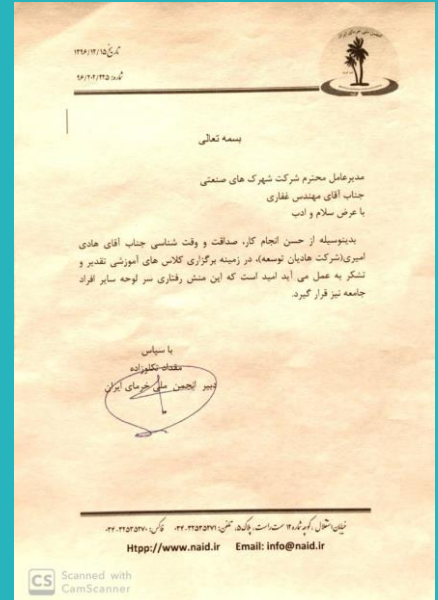 تاریخ: ۱۳۹۶/۱۲/۱۵
شماره: ۹۶/۲۰۲/۴۲۵
بسمه تعالی
مدیرعامل محترم شرکت شهرک های صنعتی
جناب آقای مهندس غفاری
با عرض سلام و ادب
بدینوسیله از حسن انجام کار، صداقت و وقت شناسی جناب آقای هادی
امیری(شرکت هادیان توسعه)، در زمینه برگزاری کلاس های آموزشی تقدیر و
تشکر به عمل می آید امید است که این منش رفتاری سر لوحه سایر افراد
جامعه نیز قرار گیرد.
با سپاس
مقداد تکلوزاده
دبیر انجمن ملی خرمای ایران
خیابان استقلال ، کوچه شماره ۱۲ سمت راست، پلاک ۵، تلفن: ۳۲۵۳۵۲۷۱-۰۳۴ فاکس: ۳۲۵۳۵۲۷۰-۰۳۴
Htpp://www.naid.ir Email: info@naid.ir
CS Scanned with
CamScanner